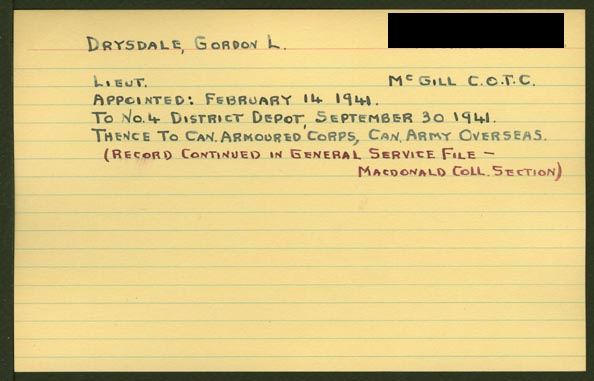 DRYSDALE, GORDON L.
LIEUT. McGILL C.O.T.C.
APPOINTED: FEBRUARY 14 1941.
TO NO.4 DISTRICT DEPOT, SEPTEMBER 30 1941.
THENCE TO CAN. ARMOURED CORPS, CAN. ARMY OVERSEAS.
(RECORD CONTINUED IN GENERAL SERVICE FILE –
MACDONALD COLL. SECTION)